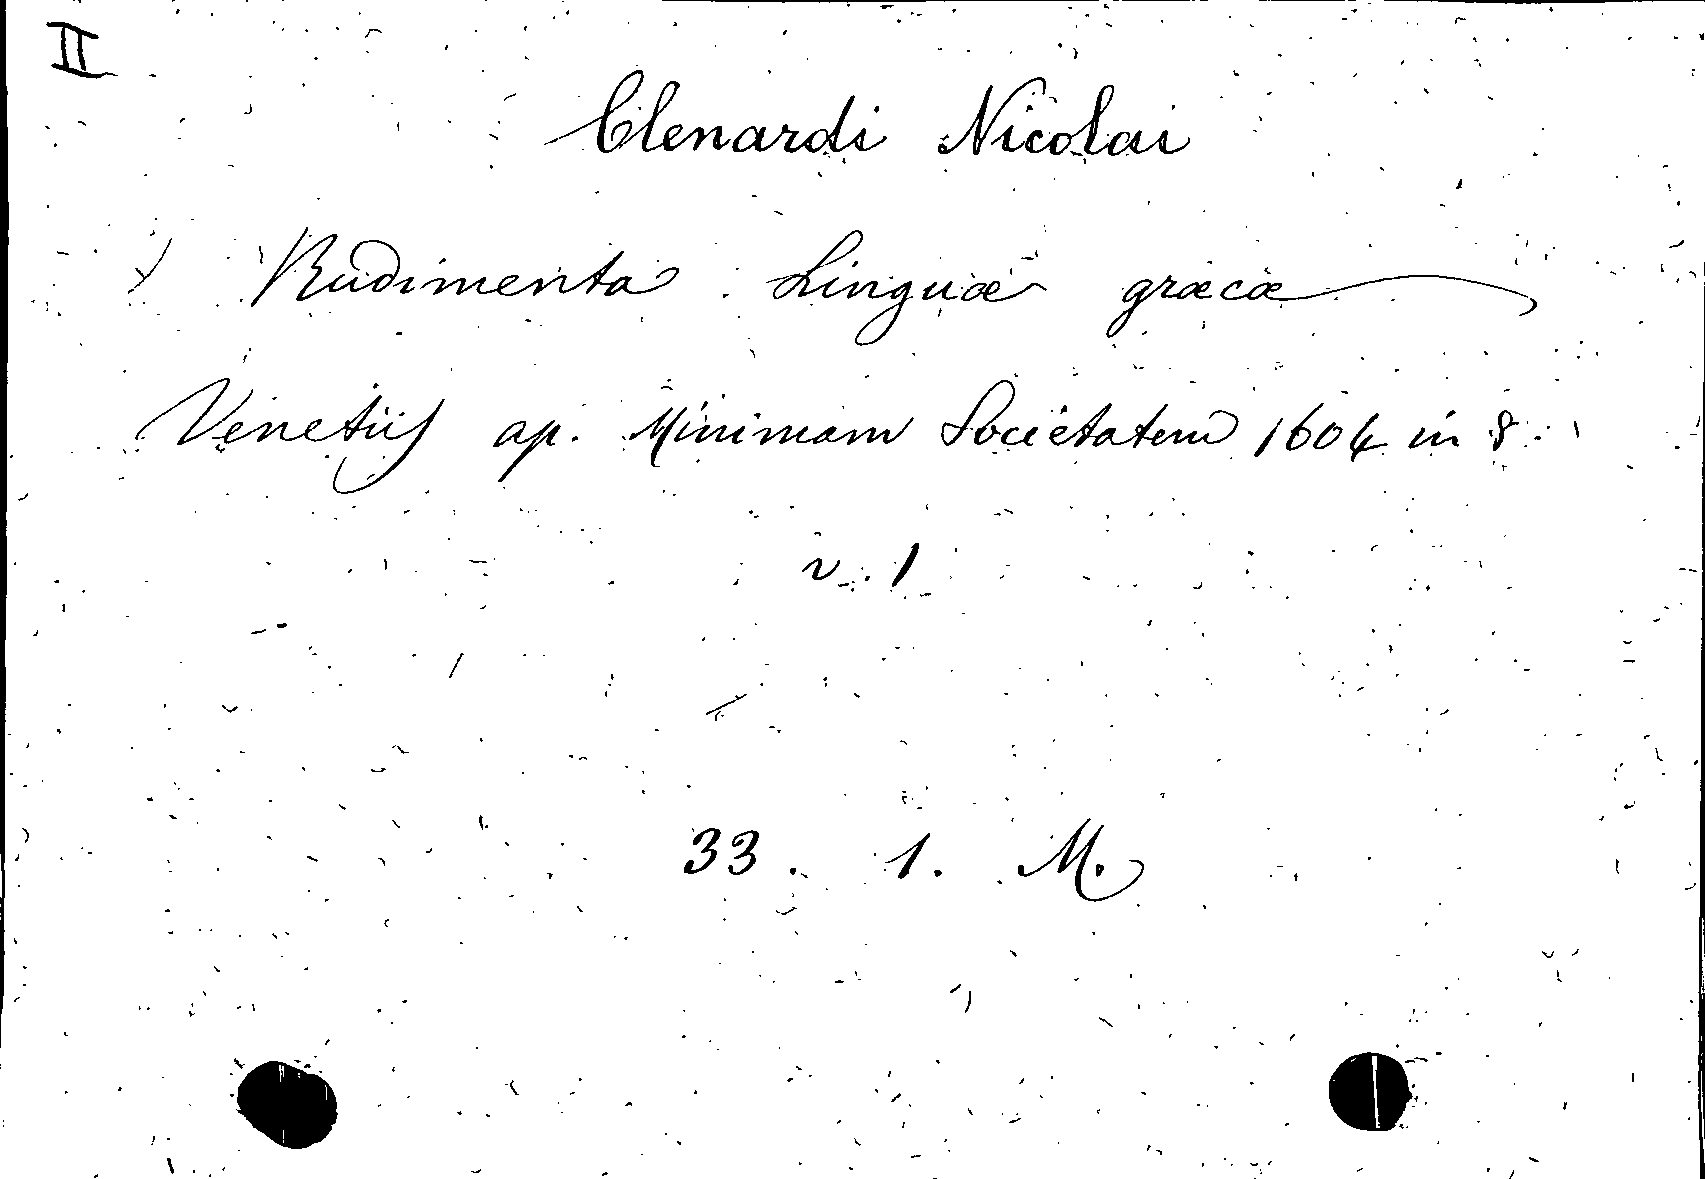 II
Clenardi Nicolai
Rudimenta Linguæ græcæ
Venetiis ap. Minimam Societatem 1604 in 8.
v. 1
33. 1. M.